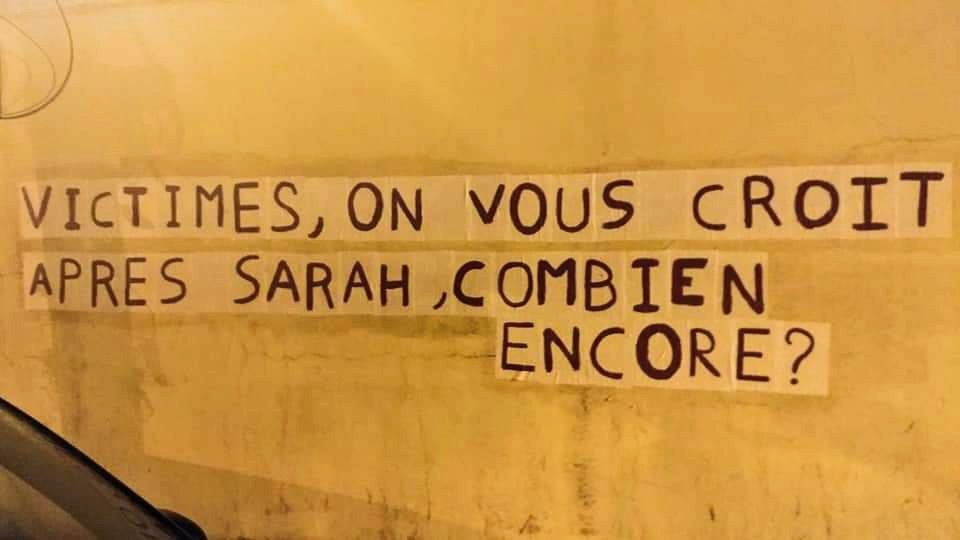 VICTIMES, ON VOUS CROIT
APRES SARAH, COMBIEN
ENCORE?